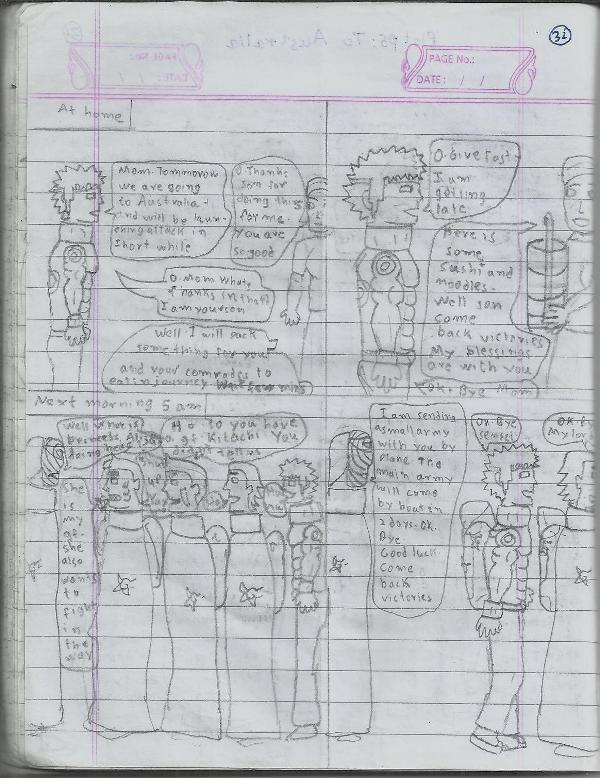 3i
PAGE No.:
DATE: / /
At home
Mom. Tommorow
we are going
to Australia-
and will be laun-
ching attack in
short while
O Thanks
son for
doing this
for me.
You are
so good
O Mom What
thanks in that
I am your son
Well I will pack
something for you
and your comrades to
eat in journey
O. Give fast
I am
getting
late
Here is
some
sushi and
noodles.
Well son
come
back victories
My blessings
are with you
Ok. Bye Mom
Next morning 5 am
of Kitachi You
She
is
my
gf.
she
also
wants
to
fight
in
the
way
I am sending
a small army
with you by
plane The
main army
will come
by boat in
2 days. OK.
Bye
Good luck.
Come
back
victories
OK Bye
sensei
OK B
My lor